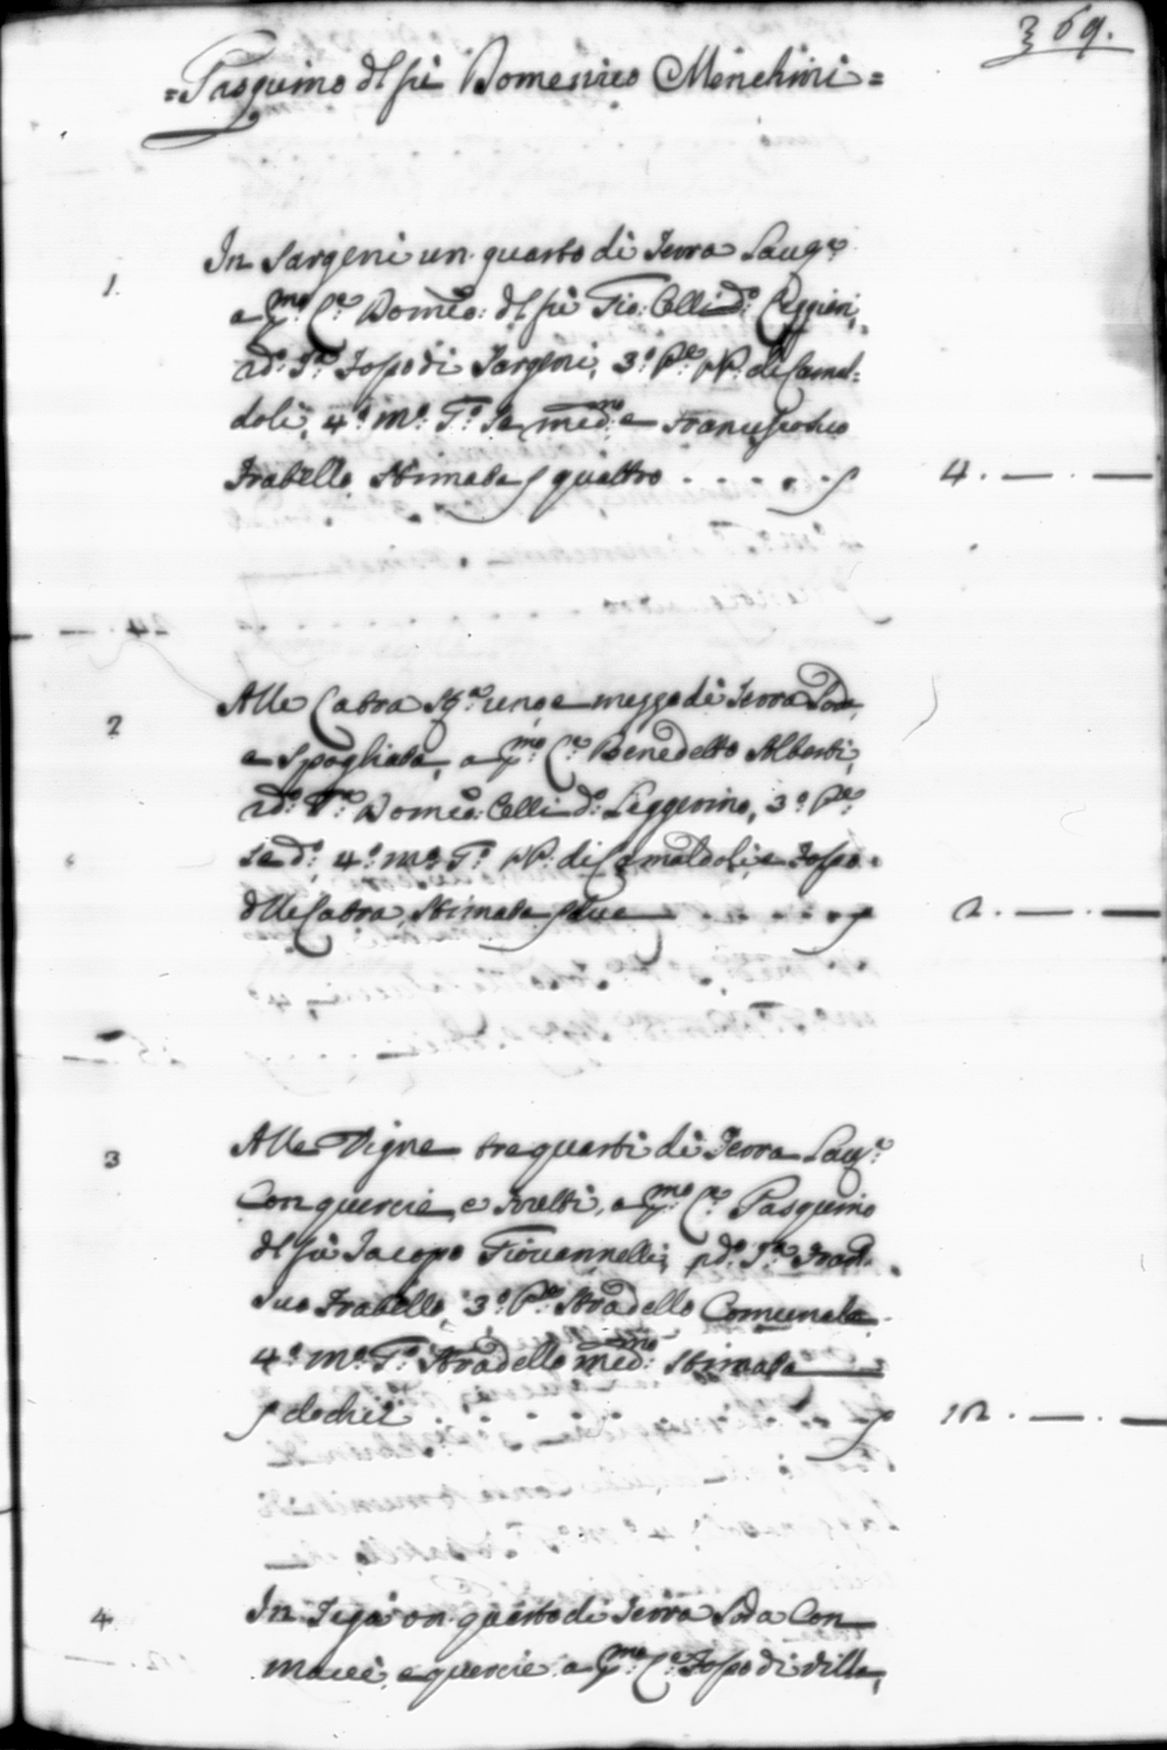 369.
=Pasquino dl fù Domenico Menchini=
1. In Sargeni un quarto di Terra Lauq.e
a p.mo C.e Dom.co: dl fù Gio: Celli d.o Leggieri,
2d.o T.a Fosso di Sargeni, 3.o P.e PP. di Camal=
doli, 4.o M.o T.o Se med.mo e Francesco suo
Fratello Stimata S quattro . . . . . S 4. — . —
2 Alle Catra St.a uno, e mezzo di Terra Soda,
e Spogliata, a p.mo C.e Benedetto Alberti,
2d.o T.a Dom.co: Celli d.o Leggerino, 3.o P.e
Se d.o, 4.o M.o T.o PP. di Camaldoli, e Fosso
dlle Catra, Stimata S due . . . . . S 2. — . —
3 Alle Vigne tre quarti di Terra Lauq.e
Con quercie, e frutti, a p.mo C.e Pasquino
dl fù Jacopo Giovannelli, 2d.o T.a Fran.
suo Fratello, 3.o P.e Stradello Comunale
4.o M.o T.o Stradello med.mo Stimata
S dodici . . . . . S 12. — . —
4. In Tega un quarto di Terra Soda Con
macie, e quercie, a p.mo C.e Fosso di Villa,